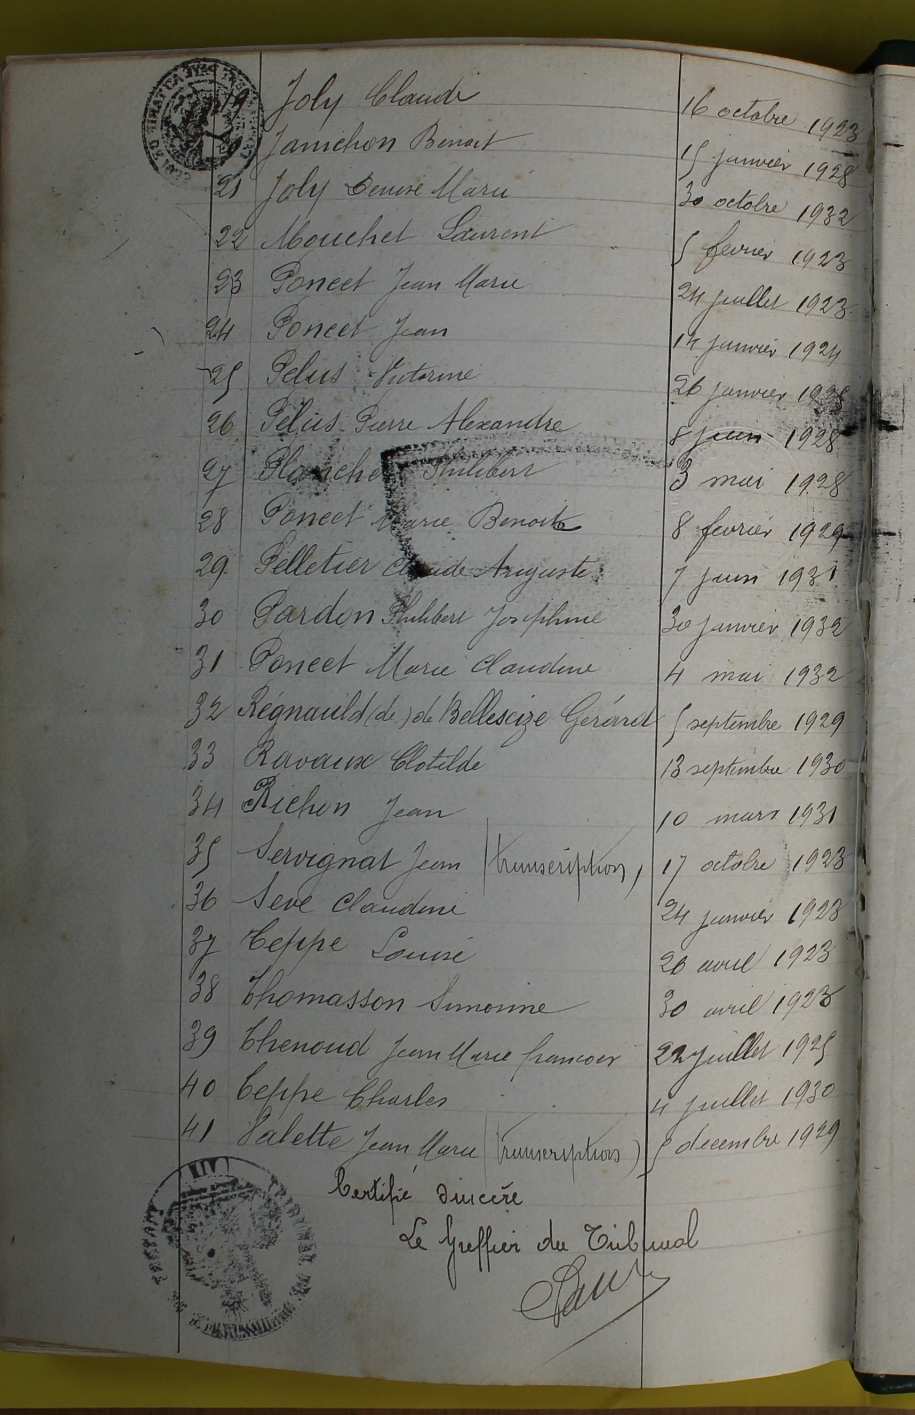 19 Joly Claude 16 octobre 1923
Janichon Benoit 15 janvier 1928
21 Joly Denise Marie 30 octobre 1932
22 Mouchet Laurent 5 février 1923
23 Poncet Jean Marie 24 juillet 1923
24 Poncet Jean 14 janvier 1924
25 Pelus Victorine 26 janvier
26 Pélus Pierre Alexandre 8 juin 1928
27 Planchet Philibert 3 mai 1928
28 Poncet Marie Benoit 8 février 1929
29 Pelletier Claude Auguste 7 juin 1931
30 Pardon Philibert Joséphine 30 janvier 1932
31 Poncet Marie Claudine 4 mai 1932
32 Régnauld (de) de Bellescize Gérard 5 septembre 1929
33 Ravaux Clotilde 13 septembre 1930
34 Richon Jean 10 mars 1931
35 Servignat Jean (transcription) 17 octobre 1923
36 Seve Claudine 24 janvier 1923
37 Teppe Louise 26 avril 1923
38 Thomasson Simonne 30 avril 1923
39 Thenoud Jean Marie François 22 juillet 1925
40 Teppe Charles 4 juillet 1930
41 Valette Jean Marie (transcription) 5 décembre 1929
Certifié sincère
Le Greffier du Tribunal